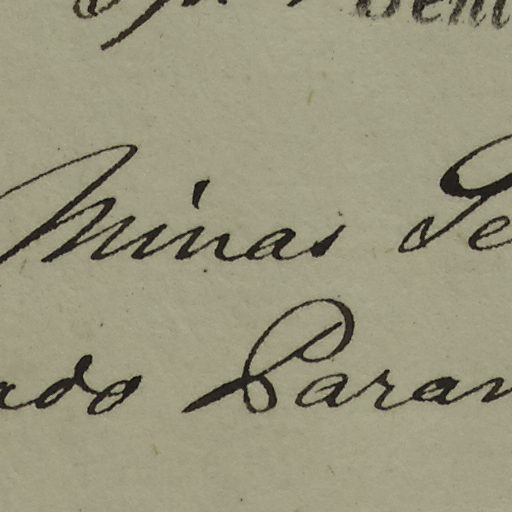 Minas Ge
ado Paran